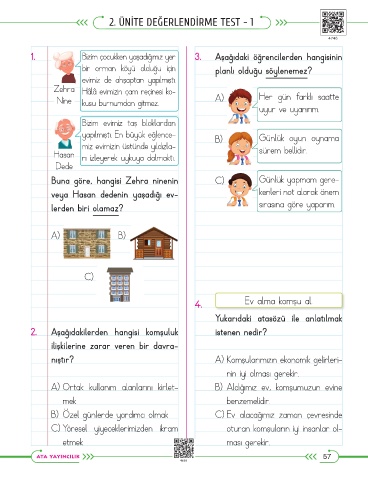 2. ÜNİTE DEĞERLENDİRME TEST - 1
1.
Bizim çocukken yaşadığımız yer
bir orman köyü olduğu için
evimiz de ahşaptan yapılmıştı.
Hâlâ evimizin çam reçinesi ko-
kusu burnumdan gitmez.
Zehra
Nine
Bizim evimiz taş bloklardan
yapılmıştı. En büyük eğlence-
miz evimizin üstünde yıldızla-
rı izleyerek uykuya dalmaktı.
Hasan
Dede
Buna göre, hangisi Zehra ninenin
veya Hasan dedenin yaşadığı ev-
lerden biri olamaz?
A)
B)
C)
2. Aşağıdakilerden hangisi komşuluk
ilişkilerine zarar veren bir davra-
nıştır?
A) Ortak kullanım alanlarını kirlet-
mek
B) Özel günlerde yardımcı olmak
C) Yöresel yiyeceklerimizden ikram
etmek
3. Aşağıdaki öğrencilerden hangisinin
planlı olduğu söylenemez?
A) Her gün farklı saatte
uyur ve uyanırım.
B) Günlük oyun oynama
sürem bellidir.
C) Günlük yapmam gere-
kenleri not alarak önem
sırasına göre yaparım.
4.
Ev alma komşu al.
Yukarıdaki atasözü ile anlatılmak
istenen nedir?
A) Komşularımızın ekonomik gelirleri-
nin iyi olması gerekir.
B) Aldığımız ev, komşumuzun evine
benzemelidir.
C) Ev alacağımız zaman çevresinde
oturan komşuların iyi insanlar ol-
ması gerekir.
ATA YAYINCILIK
57